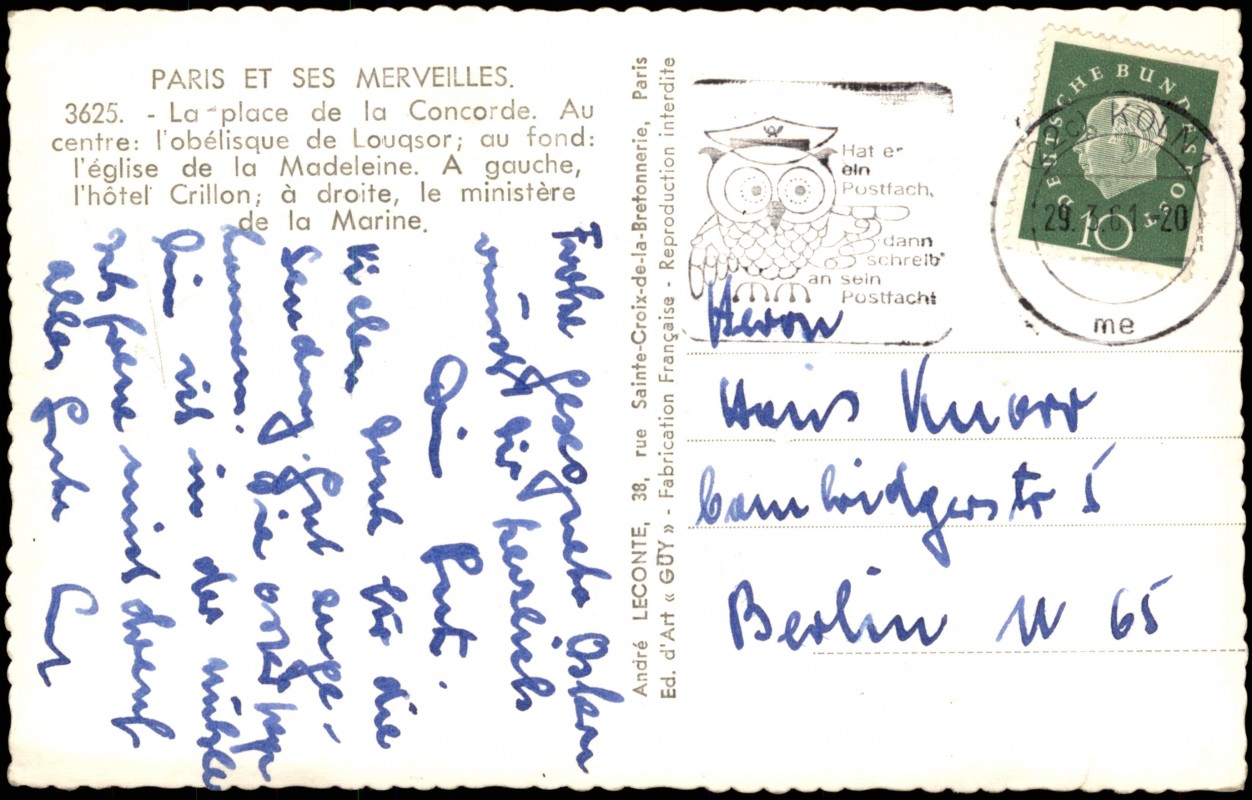 PARIS ET SES MERVEILLES.
3625. - La place de la Concorde. Au
centre: l'obélisque de Louqsor; au fond:
l'église de la Madeleine. A gauche,
l'hôtel Crillon; à droite, le ministère
de la Marine.
Frohe gesegnete Ostern
wünscht dir herzlich
Dein Curt.
Vielen Dank für die
Sendung. Gut ange-
kommen. Die
bin ich in der
ich freue mich drauf
alles Gute Curt
André LECONTE, 38, rue Sainte-Croix-de-la-Bretonnerie, Paris
Ed. d'Art « GUY » - Fabrication Française - Reproduction interdite
Hat er
ein
Postfach,
dann
schreib'
an sein
Postfach!
DEUTSCHE BUNDESPOST
10
KÖLN
29.3.61-20
me
Herrn
Hans Knorr
Cambridgerstr 5
Berlin N 65